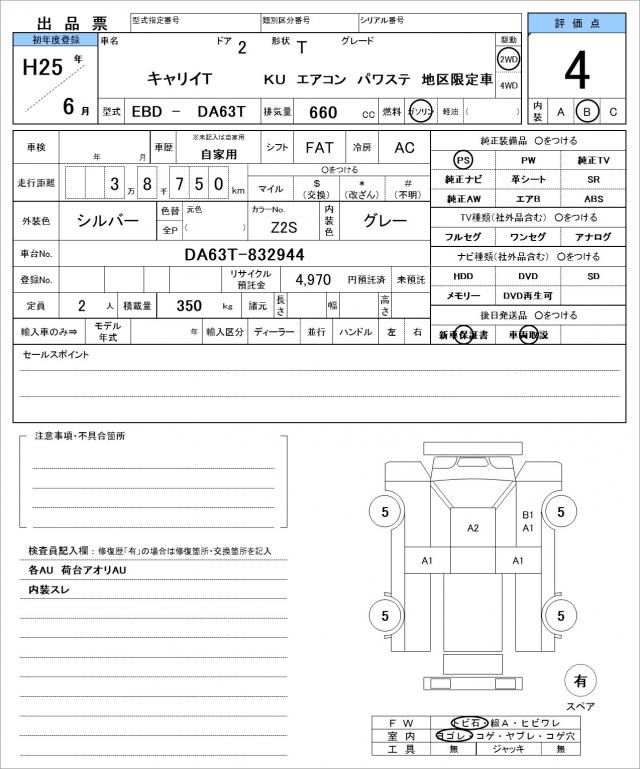 出品票 型式指定番号 類別区分番号 シリアル番号 評価点
初年度登録 車名 ドア 2 形状 T グレード 駆動
H25 年 キャリイT KU エアコン パワステ 地区限定車 2WD 4
4WD
6 月 型式 EBD － DA63T 排気量 660 cc 燃料 ガソリン 軽油 ( ) 内装 A B C
車検 年 月 車歴 ※未記入は自家用 自家用 シフト FAT 冷房 AC 純正装備品 〇をつける
PS PW 純正TV
走行距離 3 万 8 千 7 5 0 km 〇をつける
マイル $ (交換) * (改ざん) # (不明)
純正ナビ 革シート SR
純正AW エアB ABS
外装色 シルバー 色替 元色 カラーNo. 内装色 グレー
全P ( ) Z2S
TV種類(社外品含む) 〇をつける
フルセグ ワンセグ アナログ
車台No. DA63T-832944 ナビ種類(社外品含む) 〇をつける
登録No. リサイクル預託金 4,970 円預託済 未預託 HDD DVD SD
定員 2 人 積載量 350 kg 諸元 長さ 幅 高さ メモリー DVD再生可
後日発送品 〇をつける
輸入車のみ⇒ モデル年式 年 輸入区分 ディーラー 並行 ハンドル 左 右 新車保証書 車両取説
セールスポイント
注意事項・不具合箇所
5 B1 5
A2 A1
検査員記入欄：修復歴「有」の場合は修復箇所・交換箇所を記入
A1 A1
各AU 荷台アオリAU
内装スレ
5 5
有
スペア
FW トビ石・線A・ヒビワレ
室内 ヨゴレ・コゲ・ヤブレ・コゲ穴
工具 無 ジャッキ 無